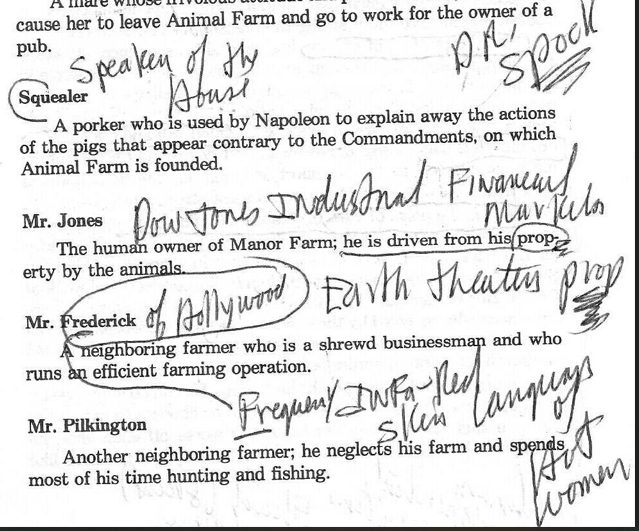 A mare whose frivolous
cause her to leave Animal Farm and go to work for the owner of a
pub.
Speaker of thy
House
D.R,
Spock
Squealer
A porker who is used by Napoleon to explain away the actions
of the pigs that appear contrary to the Commandments, on which
Animal Farm is founded.
Mr. Jones
Dow Jones Industrial Financial
Markets
The human owner of Manor Farm; he is driven from his prop-
erty by the animals.
Mr. Frederick
of Hollywood
Earth theaters prop
A neighboring farmer who is a shrewd businessman and who
runs an efficient farming operation.
Frequent Infa-Red
Skin languags
of
Hot
women
Mr. Pilkington
Another neighboring farmer; he neglects his farm and spends
most of his time hunting and fishing.